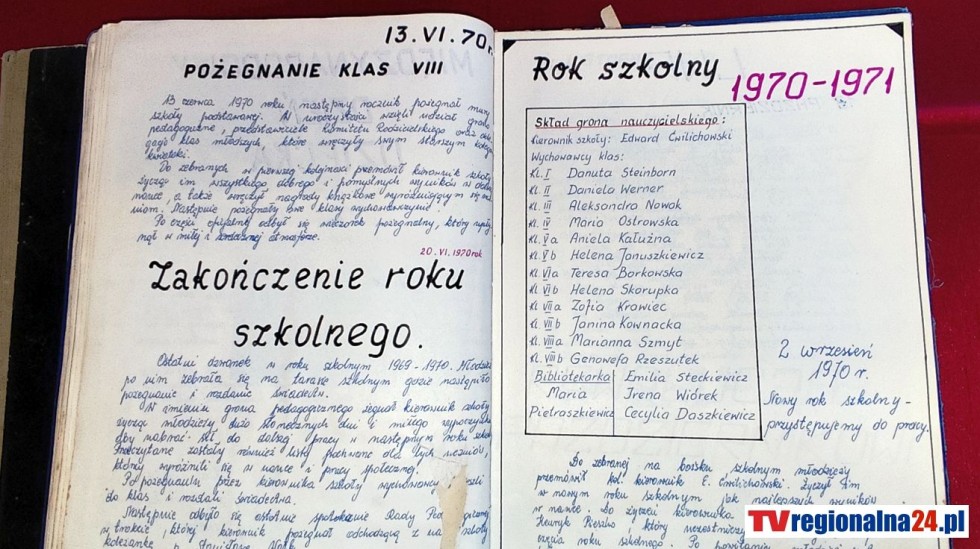 13. VI. 70 r.
POŻEGNANIE KLAS VIII
13 czerwca 1970 roku następny rocznik pożegnał mury
szkoły podstawowej. W uroczystości wzięli udział grono
pedagogiczne, przedstawiciele Komitetu Rodzicielskiego oraz
klas młodszych, które wręczyły swym starszym kolegom
kwiatki.
Do zebranych w pierwszej kolejności przemówił kierownik szkoły
życząc im wszystkiego dobrego i pomyślnych wyników w dalszej
nauce, a także wręczył nagrody książkowe wyróżniającym się
uczniom. Następnie pożegnały swe klasy wychowawczynie.
Po części oficjalnej odbył się wieczorek pożegnalny, który
w miłej i serdecznej atmosferze.
20. VI. 1970 rok
Zakończenie roku
szkolnego.
Ostatni dzwonek w roku szkolnym 1969 - 1970. Młodzież
po nim zebrała się na tarasie szkolnym gdzie nastąpiło
pożegnanie i rozdanie świadectw.
W imieniu grona pedagogicznego żegnał kierownik szkoły
życząc młodzieży dużo słonecznych dni i miłego wypoczynku
aby nabrać sił do dalszej pracy w następnym roku
Przeczytane zostały również listy pochwalne dla tych uczniów,
którzy wyróżnili się w nauce i pracy społecznej.
Po pożegnaniu przez kierownika szkoły wychowawcy
do klas i rozdali świadectwa.
Następnie odbyło się ostatnie spotkanie Rady
w trakcie, której kierownik pożegnał odchodzącą z
koleżankę
Rok szkolny
1970-1971
Skład grona nauczycielskiego:
Kierownik szkoły: Edward Ćwilichowski
Wychowawcy klas:
Kl. I Danuta Steinborn
Kl. II Daniela Werner
Kl. III Aleksandra Nowak
Kl. IV Maria Ostrowska
Kl. V a Aniela Kałużna
Kl. V b Helena Januszkiewicz
Kl. VI a Teresa Borkowska
Kl. VI b Helena Skorupka
Kl. VII a Zofia Krawiec
Kl. VII b Janina Kownacka
Kl. VIII a Marianna Szmyt
Kl. VIII b Genowefa Rzeszutek
Bibliotekarka Emilia Steckiewicz
Maria Irena Wiórek
Pietraszkiewicz Cecylia Daszkiewicz
2 wrzesień
1970 r.
Nowy rok szkolny-
przystępujemy do pracy.
Do zebranej na boisku szkolnym młodzieży
przemówił kol. kierownik E. Ćwilichowski. Życzył im
w nowym roku szkolnym jak najlepszych wyników
w nauce. Do życzeń kierownika
Henryk, który
TVregionalna24.pl